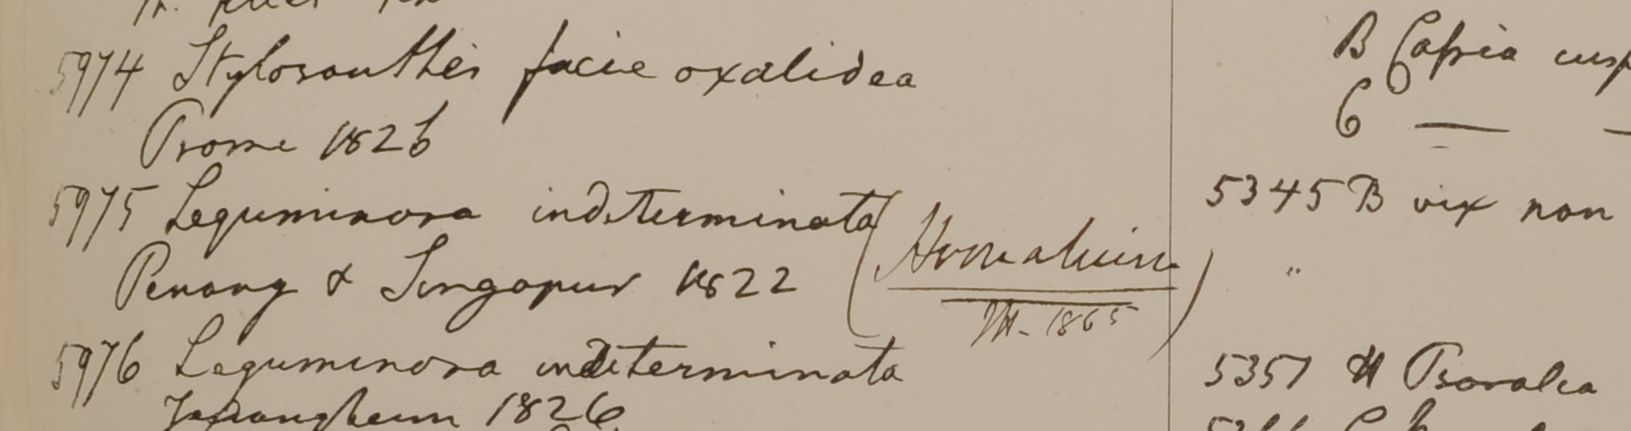 5974 Stylosanthes facie oxalidea
Prome 1826
5975 Leguminosa indeterminata
Penang & Singapur 1822 (Homalium
M. 1865)
5976 Leguminosa indeterminata
1826
B Cassia cusp
C —
5345 B vix non
"
5351 H Psoralea